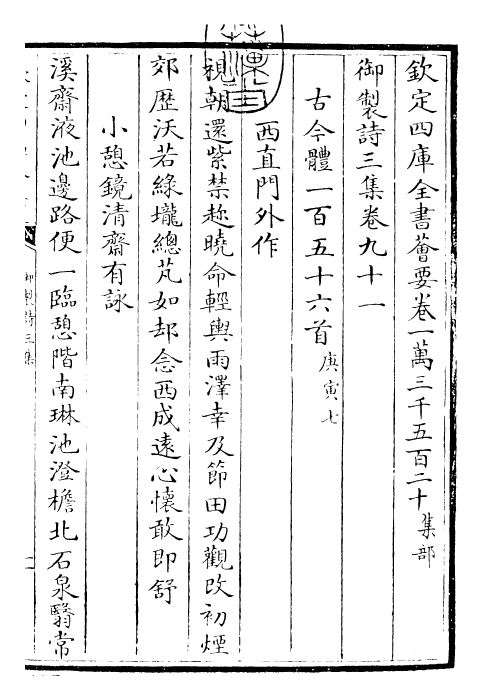 欽定四庫全書薈要卷一萬三千五百二十集部
御製詩三集卷九十一
古今體一百五十六首庚寅七
西直門外作
視朝還紫禁趂曉命輕輿雨澤幸及節田功觀改初煙
郊歴沃若綠壠總芃如却念西成逺心懷敢即舒
小憩鏡清齋有詠
溪齋液池邊路便一臨憩階南琳池澄檐北石泉翳常
御製詩三集